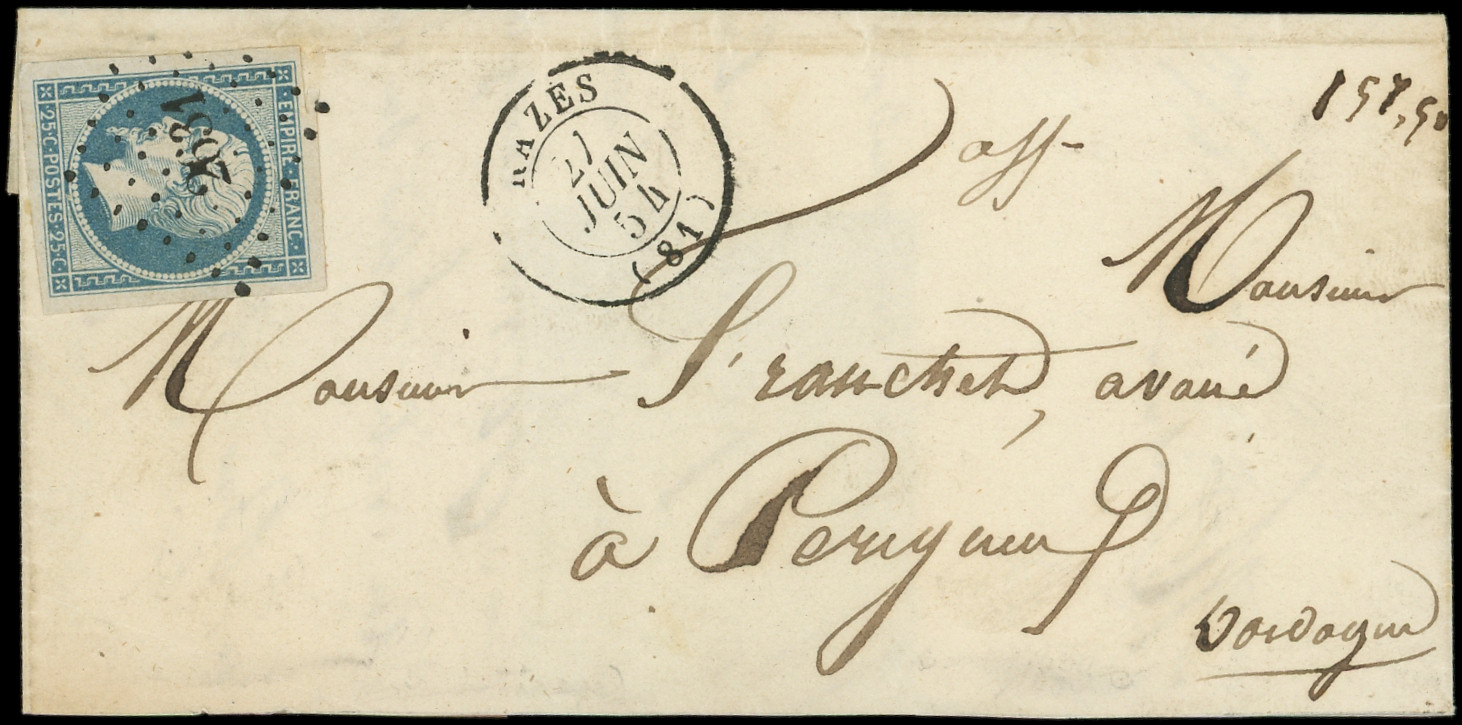 EMPIRE·FRANC·
25·C·POSTES·25·C·
2631
RAZÈS
21
JUIN
54
(81)
aff
Monsieur
Monsieur
avoué
à Perigueux
Dordogne